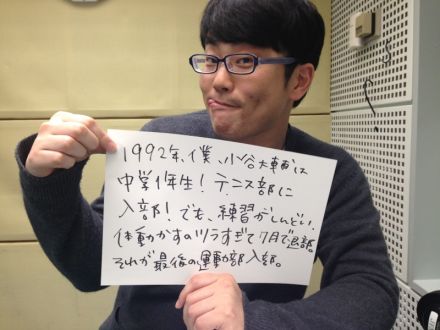 1992年、僕、小谷大輔は
中学1年生！テニス部に
入部！でも、練習がしんどい！
体動かすのツラすぎて7月で退部。
それが最後の運動部入部。